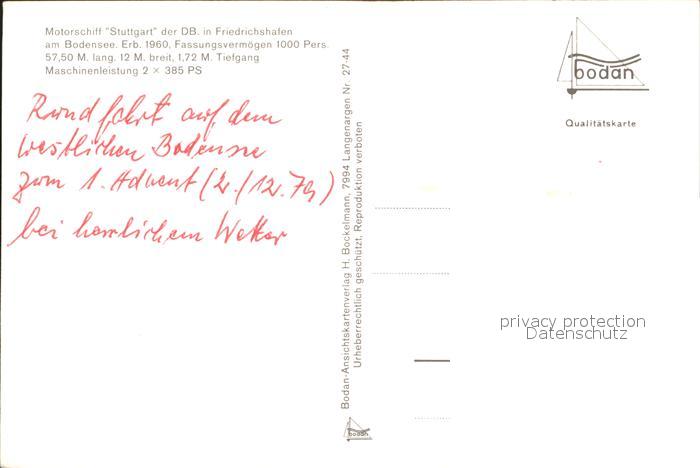 Motorschiff "Stuttgart" der DB. in Friedrichshafen
am Bodensee. Erb. 1960, Fassungsvermögen 1000 Pers.
57,50 M. lang. 12 M. breit, 1,72 M. Tiefgang
Maschinenleistung 2 × 385 PS
Rundfahrt auf dem
westlichen Bodensee
zum 1. Advent (2./12.79)
bei herrlichem Wetter
Bodan-Ansichtskartenverlag H. Bockelmann, 7994 Langenargen Nr. 27-44
Urheberrechtlich geschützt, Reproduktion verboten
bodan
bodan
Qualitätskarte
privacy protection
Datenschutz